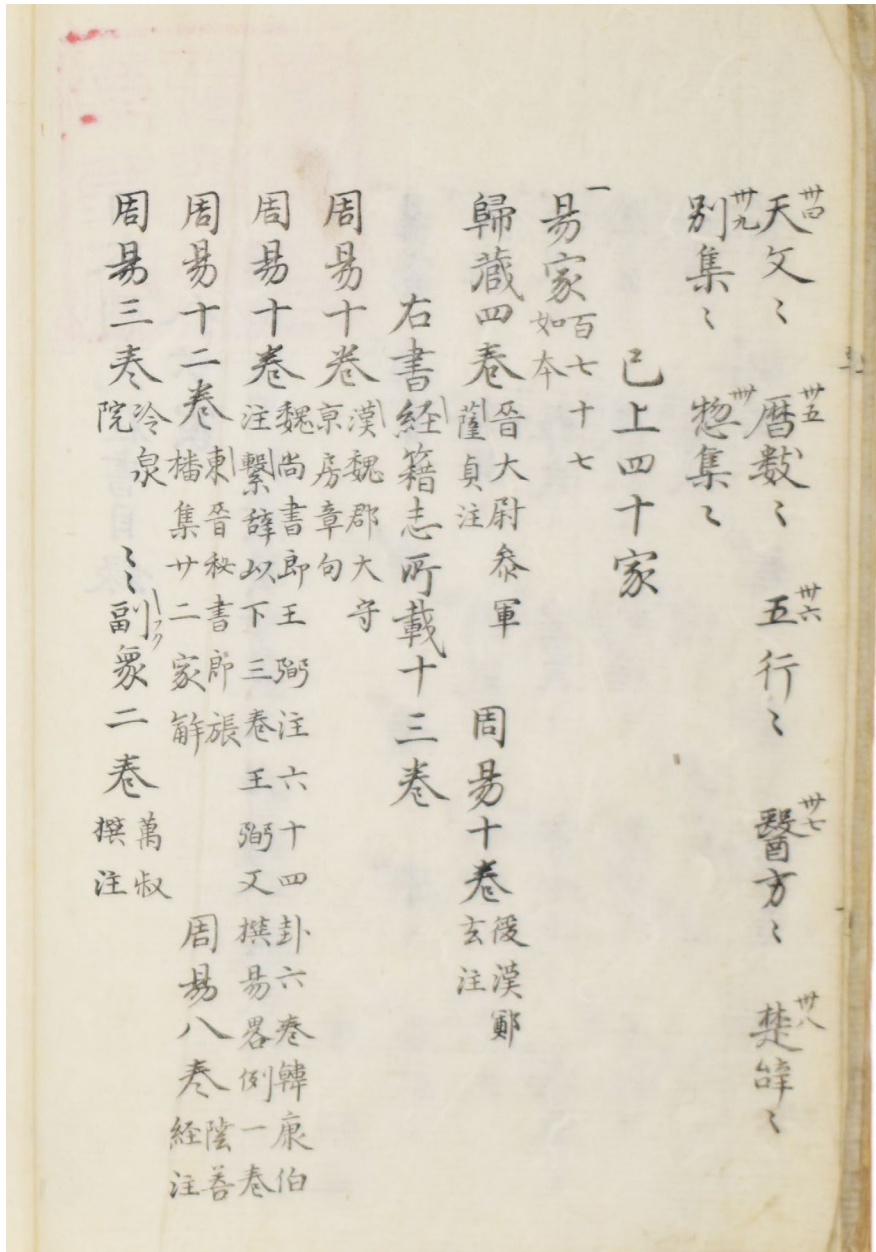 卅四天文〻　卅五暦数〻　卅六五行〻　卅七醫方〻　卅八楚辞〻
卅九別集〻　卌惣集〻
已上四十家
一易家百七十七如本
歸蔵四巻晉大尉叅軍薩貞注　周易十巻後漢鄭玄注
右書経籍志所載十三巻
周易十巻漢魏郡大守京房章句
周易十巻魏尚書郎王弼注六十四卦六巻韓康伯注繫辞以下三巻王弼又撰易畧例一巻
周易十二巻東晉秘書郎張璠集廿二家解　周易八巻陰善経注
周易三巻冷泉院〻〻副衆二巻萬叔撰注